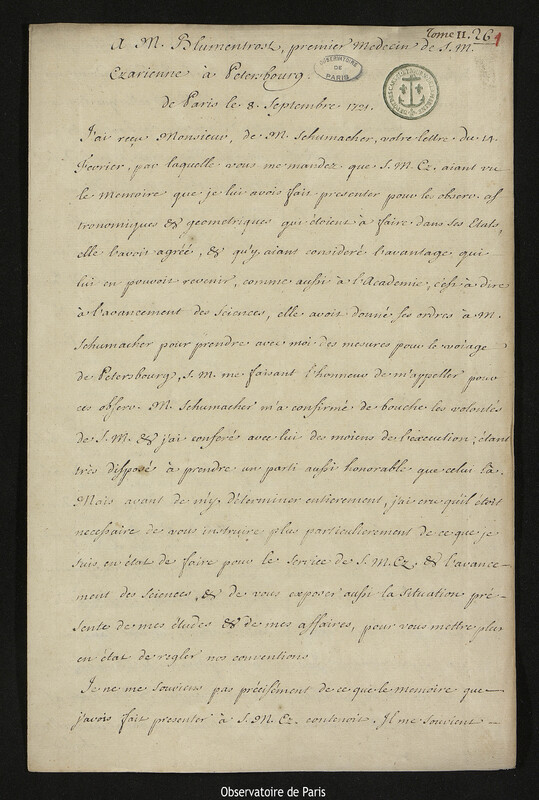 Tome II. 26 1
A M. Blumentrost, premier Medecin de S. M.
Czarienne à Petersbourg.
OBSERVATOIRE DE PARIS
de Paris le 8. Septembre 1721.
J'ai reçu Monsieur, de M. Schumacher, votre lettre du 14
fevrier, par laquelle vous me mandez que S. M. Cz. aiant vu
le Memoire que je lui avois fait presenter pour les observ. as
tronomiques & geometriques qui étoient à faire dans ses Etats,
elle l'avoit agréé, & qu'y aiant consideré l'avantage qui
lui en pouvoit revenir, comme aussi à l'Academie, c'est à dire
à l'avancement des sciences, elle avoit donné ses ordres à M.
Schumacher pour prendre avec moi des mesures pour le voiage
de Petersbourg, S. M. me faisant l'honneur de m'appeller pour
ces observ. M. Schumacher m'a confirmé de bouche les volontés
de S. M. & j'ai conferé avec lui des moiens de l'execution; étant
très disposé à prendre un parti aussi honorable que celui là.
Mais avant de m'y déterminer entierement, j'ai cru qu'il étoit
necessaire de vous instruire plus particulierement de ce que je
suis en état de faire pour le service de S. M. Cz, & l'avance-
ment des sciences, & de vous exposer aussi la situation pré-
sente de mes études & de mes affaires, pour vous mettre plus
en état de regler nos conventions
Je ne me souviens pas précisément de ce que le memoire que
j'avois fait presenter à S. M. Cz. contenoit. Il me souvient
Observatoire de Paris